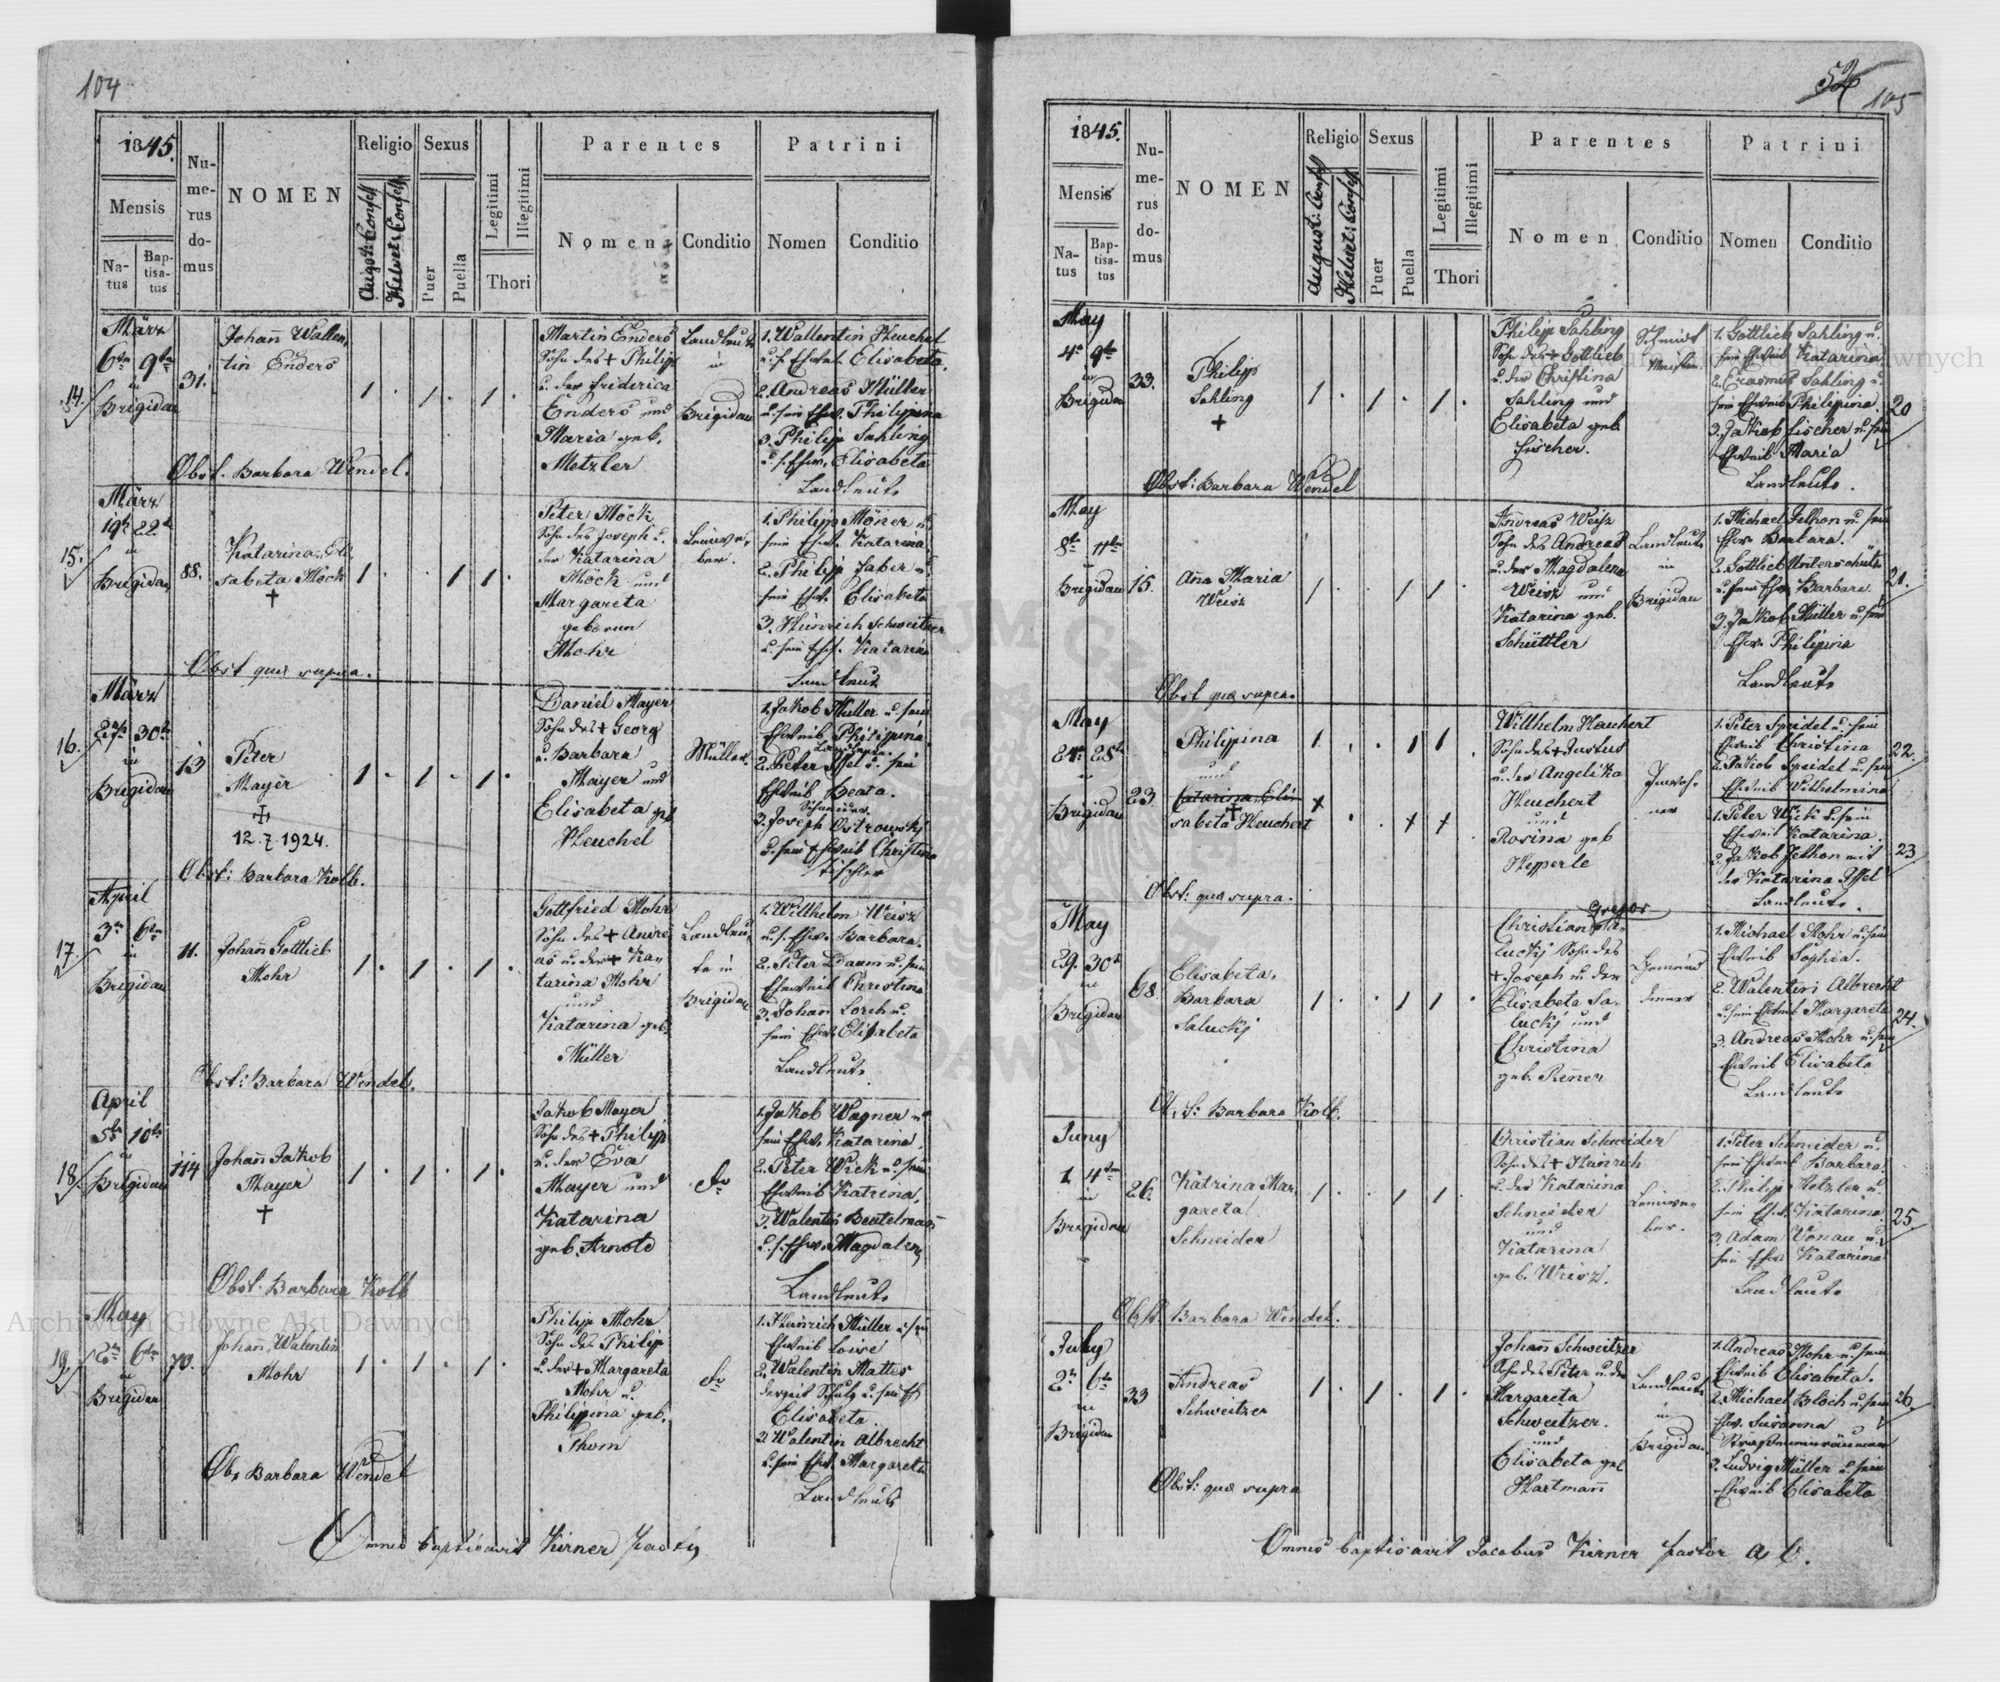 104
1845.
Mensis
Na-
tus
Bap-
tisa-
tus
Nu-
me-
rus
do-
mus
NOMEN
Religio
Augst: Confess
Helvet: Confess
Sexus
Puer
Puella
Legitimi
Illegitimi
Thori
Parentes
Nomen
Conditio
Patrini
Nomen
Conditio
14.
März
6ten 9ten
in
Brigidau
31.
Johañ Wallen,
tin Enders
Martin Enders
Sohn des + Philipp
u. der Friderica
Enders und
Maria geb.
Metzler
Landleute
in
Brigidau
1. Wallentin Heuchel
u. s. Ehew. Elisabeta.
2. Andreas Müller
u. sein Ehew. Philipina
3. Philip Sahling
u. s. Ehew. Elisabeta
Landleute
Obst. Barbara Wendel.
15.
März
19t 22t
in
Brigidau
88.
Katarina Eli
sabeta Möck
+
Peter Möck
Sohn des Joseph u.
der Katarina
Möck und
Margareta
geboren
Mohr
Leinwe,
ber.
1. Philipp Möner u.
sein Ehew. Katarina
2. Philipp Faber u.
sein Ehew. Elisabeta
3. Heinrich Schweitzer
u. sein Ehew. Katarina
Landleute
Obst quæ supra.
16.
März
30ten
in
Brigidau
13
Peter
Mayer
12.7.1924.
Daniel Mayer
Sohn des + Georg
u. Barbara
Mayer und
Elisabeta geb
Heuchel
Müller.
1. Jakob Müller u. sein
Eheweib Philipina
Landleute.
2. Peter Issel u. sein
Eheweib Beata.
Schneider.
3. Joseph Ostrowskj
u. sein Eheweib Christina
Tischler
Obst: Barbara Kolb.
17.
April
3ten 6ten
in
Brigidau
11.
Johañ Gottlieb
Mohr
Gottfried Mohr
Sohn des + Andre
as u. der + Ka,
tarina Mohr
und
Katarina geb.
Müller
Landleu,
te in
Brigidau
1. Willhelm Weisz
u. s. Ehew. Barbara.
2. Peter Daum u. sein
Eheweib Christina
3. Johañ Lorch u.
sein Ehew. Elisabeta
Landleute
Obst: Barbara Wendel.
18.
April
5t 10ten
in
Brigidau
114
Johañ Jakob
Mayer
+
Jakob Mayer
Sohn des + Philipp
u. der Eva
Mayer und
Katarina
geb. Arnold
do
1. Jakob Wagner u.
sein Ehew. Katarina
2. Peter Wick u. sein
Eheweib Katrina.
3. Walentin Beutelmañ
u. s. Ehew. Magdalena
Landleute
Obst. Barbara Kolb
19.
May
2ten 6ten
in
Brigidau
70.
Johañ Walentin
Mohr
Philipp Mohr
Sohn des Philip
u. der + Margareta
Mohr u.
Philippina geb.
Thom
do
1. Heinrich Müller u. sein
Eheweib Lowise
2. Walentin Mattes
derzeit Schulz u. sein Eh
Elisabeta.
3. Walentin Albrecht
u. sein Ehew. Margareta
Landleute
Obs Barbara Wendel
Omnes baptisavit Kirner Pastor
52
105
1845.
Mensis
Na-
tus
Bap-
tisa-
tus
Nu-
me-
rus
do-
mus
NOMEN
Religio
August: Confess
Helvet: Confess
Sexus
Puer
Puella
Legitimi
Illegitimi
Thori
Parentes
Nomen
Conditio
Patrini
Nomen
Conditio
May
4t 9ten
in
Brigidau
33.
Philipp
Sahling
+
Philip Sahling
Sohn des + Gottlieb
u. der Christina
Sahling und
Elisabeta geb
Fischer.
Schmidt
Meister.
1. Gottlieb Sahling u.
sein Eheweib Katarina
2. Erasmus Sahling u.
sein Eheweib Philipina.
3. Jakob Fischer u. sein
Eheweib Maria
Landleute.
20
Obst: Barbara Wendel
May
8t 11ten
in
Brigidau
15.
Aña Maria
Weisz
Andreas Weisz
Sohn des Andreas
u. der Magdalena
Weisz und
Katarina geb.
Schüttler
Landleute
in
Brigidau
1. Michael Jethon u. sein
Ehew. Barbara.
2. Gottlieb Unterschütz
u. sein Ehew. Barbara.
3. Jakob Müller u. sein
Ehew. Philipina
Landleute
21.
Obst quæ supra.
May
24t 28ten
in
Brigidau
23.
Philippina
und
Catarina Eli
sabeta Heuchert
+
Willhelm Heuchert
Sohn des + Justus
u. der Angelika
Heuchert
und
Rosina geb
Hepperle
Inwoh-
ner
1. Peter Speidel u. sein
Eheweib Christina
2. Jakob Speidel u. sein
Eheweib Wilhelmina
22.
1. Peter Wick u. sein
Eheweib Katarina.
2. Jakob Jethon mit
der Katarina Issel
Landleute.
23
Obst: quæ supra.
May
29. 30t
in
Brigidau
68.
Elisabeta,
Barbara
Saluckj
Gregor
Christian Sa-
luckj Sohn des
+ Joseph u. der
Elisabeta Sa,
luckj und
Christina
geb. Reñer
Gemeind
diener
1. Michael Mohr u. sein
Eheweib Sophia.
2. Walentin Albrecht
u. sein Eheweib Margareta
3. Andreas Mohr u. sein
Eheweib Elisabeta
Landleute
24.
O. S: Barbara Kolb.
Juny
1. 4ten
in
Brigidau
26.
Katrina Mar,
gareta
Schneider
Christian Schneider
Sohn des + Heinrich
u. der Katarina
Schneider
und
Katarina
geb. Weisz.
Leinwe-
ber.
1. Peter Schneider u.
sein Eheweib Barbara.
2. Philip Metzler u.
sein Ehew. Katarina.
3. Adam Vonau u.
sein Ehew Katarina
Landleute
25.
Obst. Barbara Wendel.
July
2t 6ten
in
Brigidau
33
Andreas
Schweitzer
Johañ Schweitzer
Sohn des Peter u. der
Margareta
Schweitzer.
und
Elisabeta geb
Hartmañ
Landleute
in
Brigidau
1. Andreas Mohr u. sein
Eheweib Elisabeta.
2. Michael Bloch u. sein
Ehew. Susanna
3. Ludwig Müller u. sein
Eheweib Elisabeta
26.
Obst: quæ supra
Omnes baptisavit Jacobus Kirner pastor A C.
Archiwum Główne Akt Dawnych